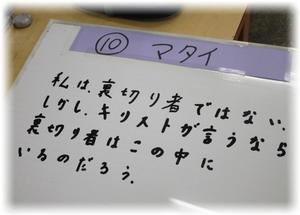 ⑩ マタイ
私は、裏切り者ではない。
しかし、キリストが言うなら
裏切り者はこの中に
いるのだろう。